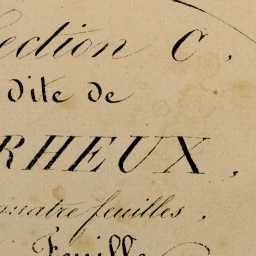 ection C.
dite de
RHEUX,
quatre feuilles.
Feuille